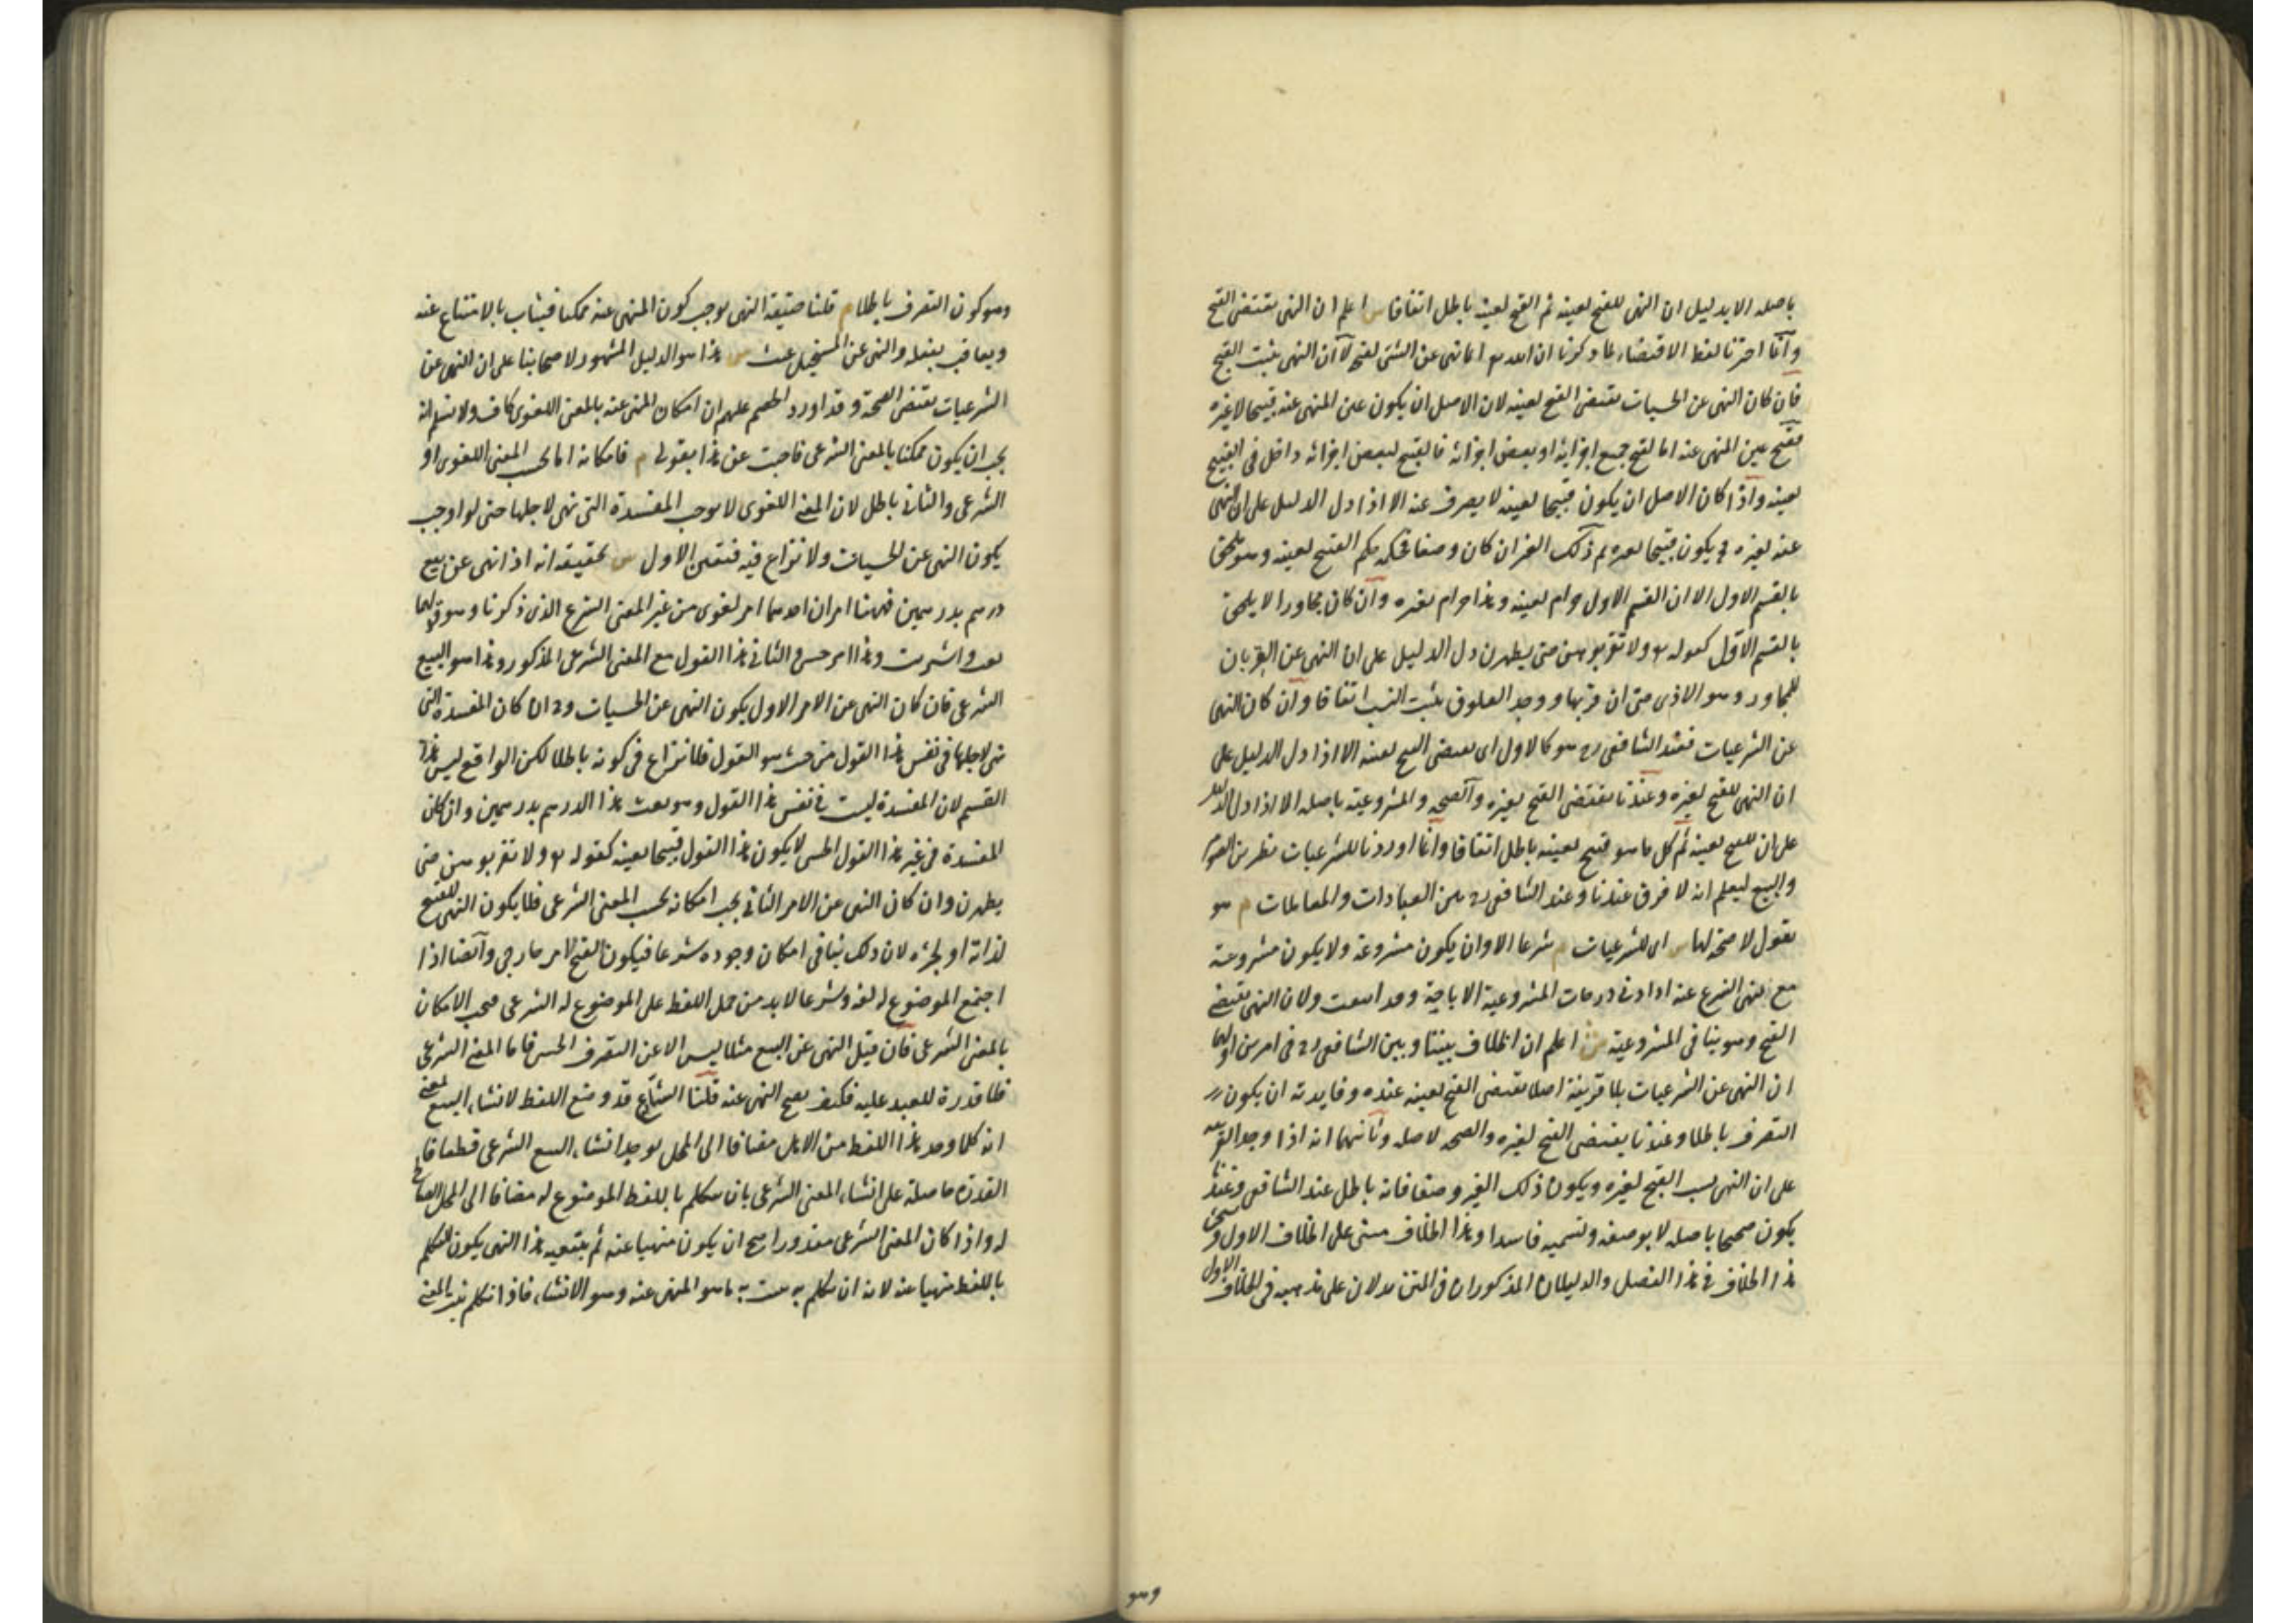 باصله الا بدليل ان النهى للقبح لعينه ثم القبح لعينه باطل اتفاقا ش اعلم ان النهى يقتضى القبح
وانما اخترنا لفظ الاقتضاء لما ذكرنا ان الله تع انما نهى عن الشئ لقبحه لا ان النهى يثبت القبح
فان كان النهى عن الحسيات يقتضى القبح لعينه لان الاصل ان يكون عين المنهى عنه قبيحا لا غيره
فقبح عين المنهى عنه اما لقبح جميع اجزائه او بعض اجزائه فالقبح لبعض اجزائه داخل فى القبيح
لعينه واذا كان الاصل ان يكون قبيحا لعينه لا يصرف عنه الا اذا دل الدليل على ان النهى
عنه لغيره فح يكون قبيحا لغيره ثم ذلك الغير ان كان وصفا فحكمه حكم القبيح لعينه وهو ملحق
بالقسم الاول الا ان القسم الاول حرام لعينه وهذا حرام لغيره وان كان مجاورا لا يلحق
بالقسم الاول كقوله تع ولا تقربوهن حتى يطهرن دل الدليل على ان النهى عن القربان
للمجاور وهو الاذى حتى ان قربها ووجد العلوق يثبت النسب اتفاقا وان كان النهى
عن الشرعيات فعند الشافعى رح هو كالاول اى يقتضى القبح لعينه الا اذا دل الدليل على
ان النهى للقبح لغيره وعندنا يقتضى القبح لغيره والصحة والمشروعية باصله الا اذا دل الدليل
على ان القبح لعينه ثم كل ما هو قبيح لعينه باطل اتفاقا وانما اوردنا للشرعيات نظيرين الصوم
والبيع ليعلم انه لا فرق عندنا وعند الشافعى رح بين العبادات والمعاملات م هو
يقول لا صحة لها ش اى للشرعيات م شرعا الا وان يكون مشروعة ولا يكون مشروعة
مع نهى الشرع عنه اذ ادنى درجات المشروعية الاباحة وقد انتفت ولان النهى يقتضى
القبح وهو ينافى المشروعية ش اعلم ان الخلاف بيننا وبين الشافعى رح فى امرين اولهما
ان النهى عن الشرعيات بلا قرينة اصلا يقتضى القبح لعينه عنده وفايدته ان يكون
التصرف باطلا وعندنا يقتضى القبح لغيره والصحة لاصله وثانيهما انه اذا وجد القرينة
على ان النهى بسبب القبح لغيره ويكون ذلك الغير وصفا فانه باطل عند الشافعى وعندنا
يكون صحيحا باصله لا بوصفه ونسميه فاسدا وهذا الخلاف مبنى على الخلاف الاول وسيجئ
هذا الخلاف فى هذا الفصل والدليلان المذكوران فى المتن يدلان على مذهبه فى الخلاف الاول
وهو
وهو كون التصرف باطلا م قلنا حقيقة النهى يوجب كون المنهى عنه ممكنا فيثاب بالامتناع عنه
ويعاقب بفعله والنهى عن المستحيل عبث ش هذا هو الدليل المشهور لاصحابنا على ان النهى عن
الشرعيات يقتضى الصحة وقد اورد الخصم عليهم ان امكان المنهى عنه بالمعنى اللغوى كاف ولا نسلم انه
يجب ان يكون ممكنا بالمعنى الشرعى فاجبت عن هذا بقولى م فامكانه اما بحسب المعنى اللغوى او
الشرعى والثانى باطل لان المعنى اللغوى لا يوجب المفسدة التى نهى لاجلها حتى لو اوجب
يكون النهى عن الحسيات ولا نزاع فيه فتعين الاول ش تحقيقه انه اذا نهى عن بيع
درهم بدرهمين فههنا امران احدهما امر لغوى من غير المعنى الشرعى الذى ذكرنا وهو قولهما
بعت واشتريت وهذا امر حسى والثانى هذا القول مع المعنى الشرعى المذكور وهذا هو البيع
الشرعى فان كان النهى عن الامر الاول يكون النهى عن الحسيات وح ان كان المفسدة التى
نهى لاجلها فى نفس هذا القول من حيث هو القول فلا نزاع فى كونه باطلا لكن الواقع ليس هذا
القسم لان المفسدة ليست فى نفس هذا القول وهو بعت هذا الدرهم بدرهمين وان كان
المفسدة فى غير هذا القول الحسى لا يكون هذا القول قبيحا لعينه كقوله تع ولا تقربوهن حتى
يطهرن وان كان النهى عن الامر الثانى يجب امكانه بحسب المعنى الشرعى فلا يكون النهى للقبح
لذاته او لجزئه لان ذلك ينافى امكان وجوده شرعا فيكون القبح لامر خارجى وايضا اذا
اجتمع الموضوع له لغة وشرعا لا بد من حمل اللفظ على الموضوع له الشرعى فيجب الامكان
بالمعنى الشرعى فان قيل النهى عن البيع مثلا ليس الا عن التصرف الحسى فاما المعنى الشرعى
فلا قدرة للعبد عليه فكيف يصح النهى عنه قلنا الشارع قد وضع اللفظ لانشاء البيع بمعنى
انه كلما وجد هذا اللفظ من الاهل مضافا الى المحل يوجد انشاء البيع الشرعى قطعا فا
القدرة حاصلة على انشاء المعنى الشرعى بان يتكلم باللفظ الموضوع له مضافا الى المحل الصالح
له واذا كان المعنى الشرعى مقدورا صح ان يكون منهيا عنه ثم بتبعية هذا النهى يكون التكلم
باللفظ منهيا عنه لانه ان تكلم به يثبت به ما هو المنهى عنه وهو الانشاء فاذا تكلم يثبت المعنى